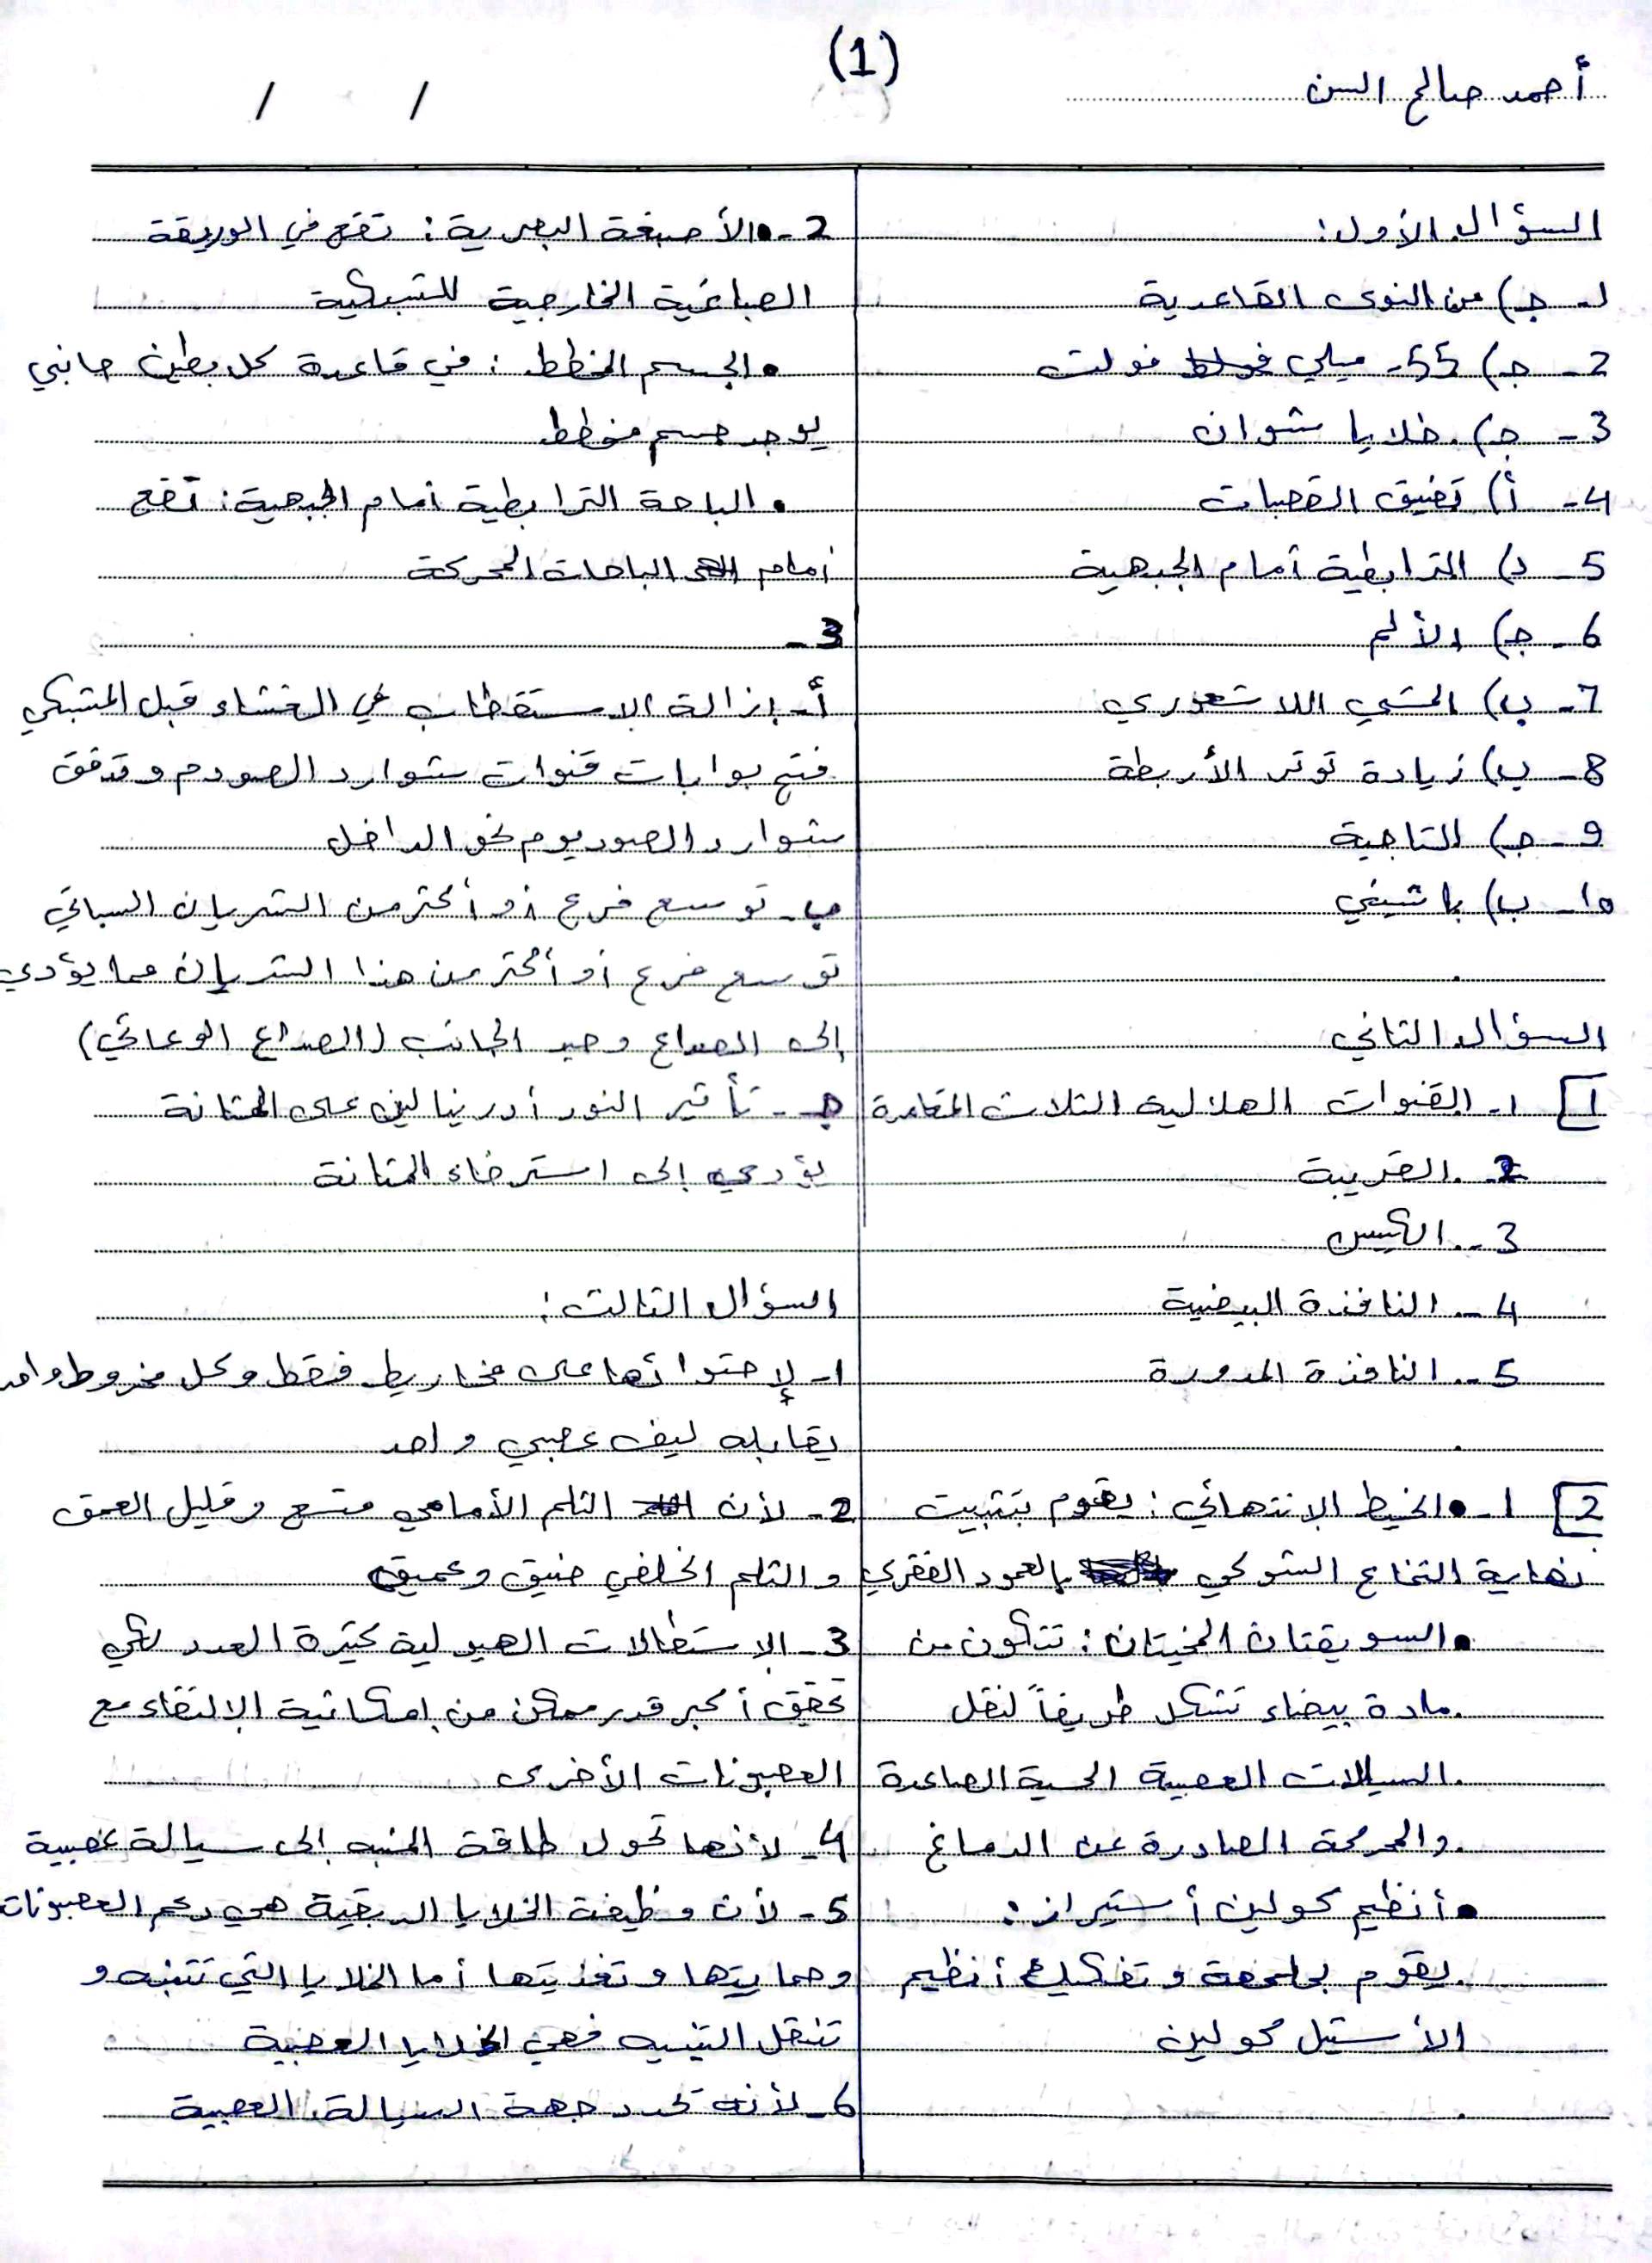 (1)
أحمد صالح السن
/ /
السؤال الأول:
1- جـ) من النوى القاعدية
2- جـ) 55- ميلي فولت
3- جـ) خلايا شوان
4- أ) تضيق القصبات
5- د) الترابطية أمام الجبهية
6- جـ) الألم
7- ب) المشي اللاشعوري
8- ب) زيادة توتر الأربطة
9- جـ) التاجية
10- ب) باشيني
السؤال الثاني
1] 1- القنوات الهلالية الثلاث المتعامدة
2- القريبة
3- الكييس
4- النافذة البيضية
5- النافذة المدورة
2] 1- • الخيط الانتهائي: يقوم بتثبيت
نهاية النخاع الشوكي بالعمود الفقري
• السويقتان المخيتان: تتكون من
مادة بيضاء تشكل طريقاً لنقل
السيالات العصبية الحسية الصاعدة
والمحركة الصادرة عن الدماغ
• أنظيم كولين أستيراز:
يقوم بحلمهة وتفكيك أنظيم
الأستيل كولين
2- • الأصبغة البصرية: تقع في الوريقة
الصباغية الخارجية للشبكية
• الجسم المخطط: في قاعدة كل بطين جانبي
يوجد جسم مخطط
• الباحة الترابطية أمام الجبهية: تقع
أمام الباحات المحركة
3-
أ- إزالة الاستقطاب في الغشاء قبل المشبكي
فتح بوابات قنوات شوارد الصودم وتدفق
شوارد الصوديوم نحو الداخل
ب- توسع فرع أو أكثر من الشريان السباتي
توسع فرع أو أكثر من هذا الشريان مما يؤدي
إلى الصداع وحيد الجانب (الصداع الوعائي)
جـ- تأثير النور أدرينالين على المثانة
يؤدي إلى استرخاء المثانة
السؤال الثالث:
1- لاحتوائها على مخاريط فقط وكل مخروط واحد
يقابله ليف عصبي واحد
2- لأن الثلم الأمامي متسع وقليل العمق
والثلم الخلفي ضيق وعميق
3- الاستطالات الهيولية كثيرة العدد لكي
تحقق أكبر قدر ممكن من إمكانية الالتقاء مع
العصبونات الأخرى
4- لأنها تحول طاقة المنبه إلى سيالة عصبية
5- لأن وظيفة الخلايا الدبقية هي دعم العصبونات
وحمايتها وتغذيتها أما الخلايا التي تتنبه و
تنقل التنبيه فهي الخلايا العصبية
6- لأنه تحدد جهة السيالة العصبية